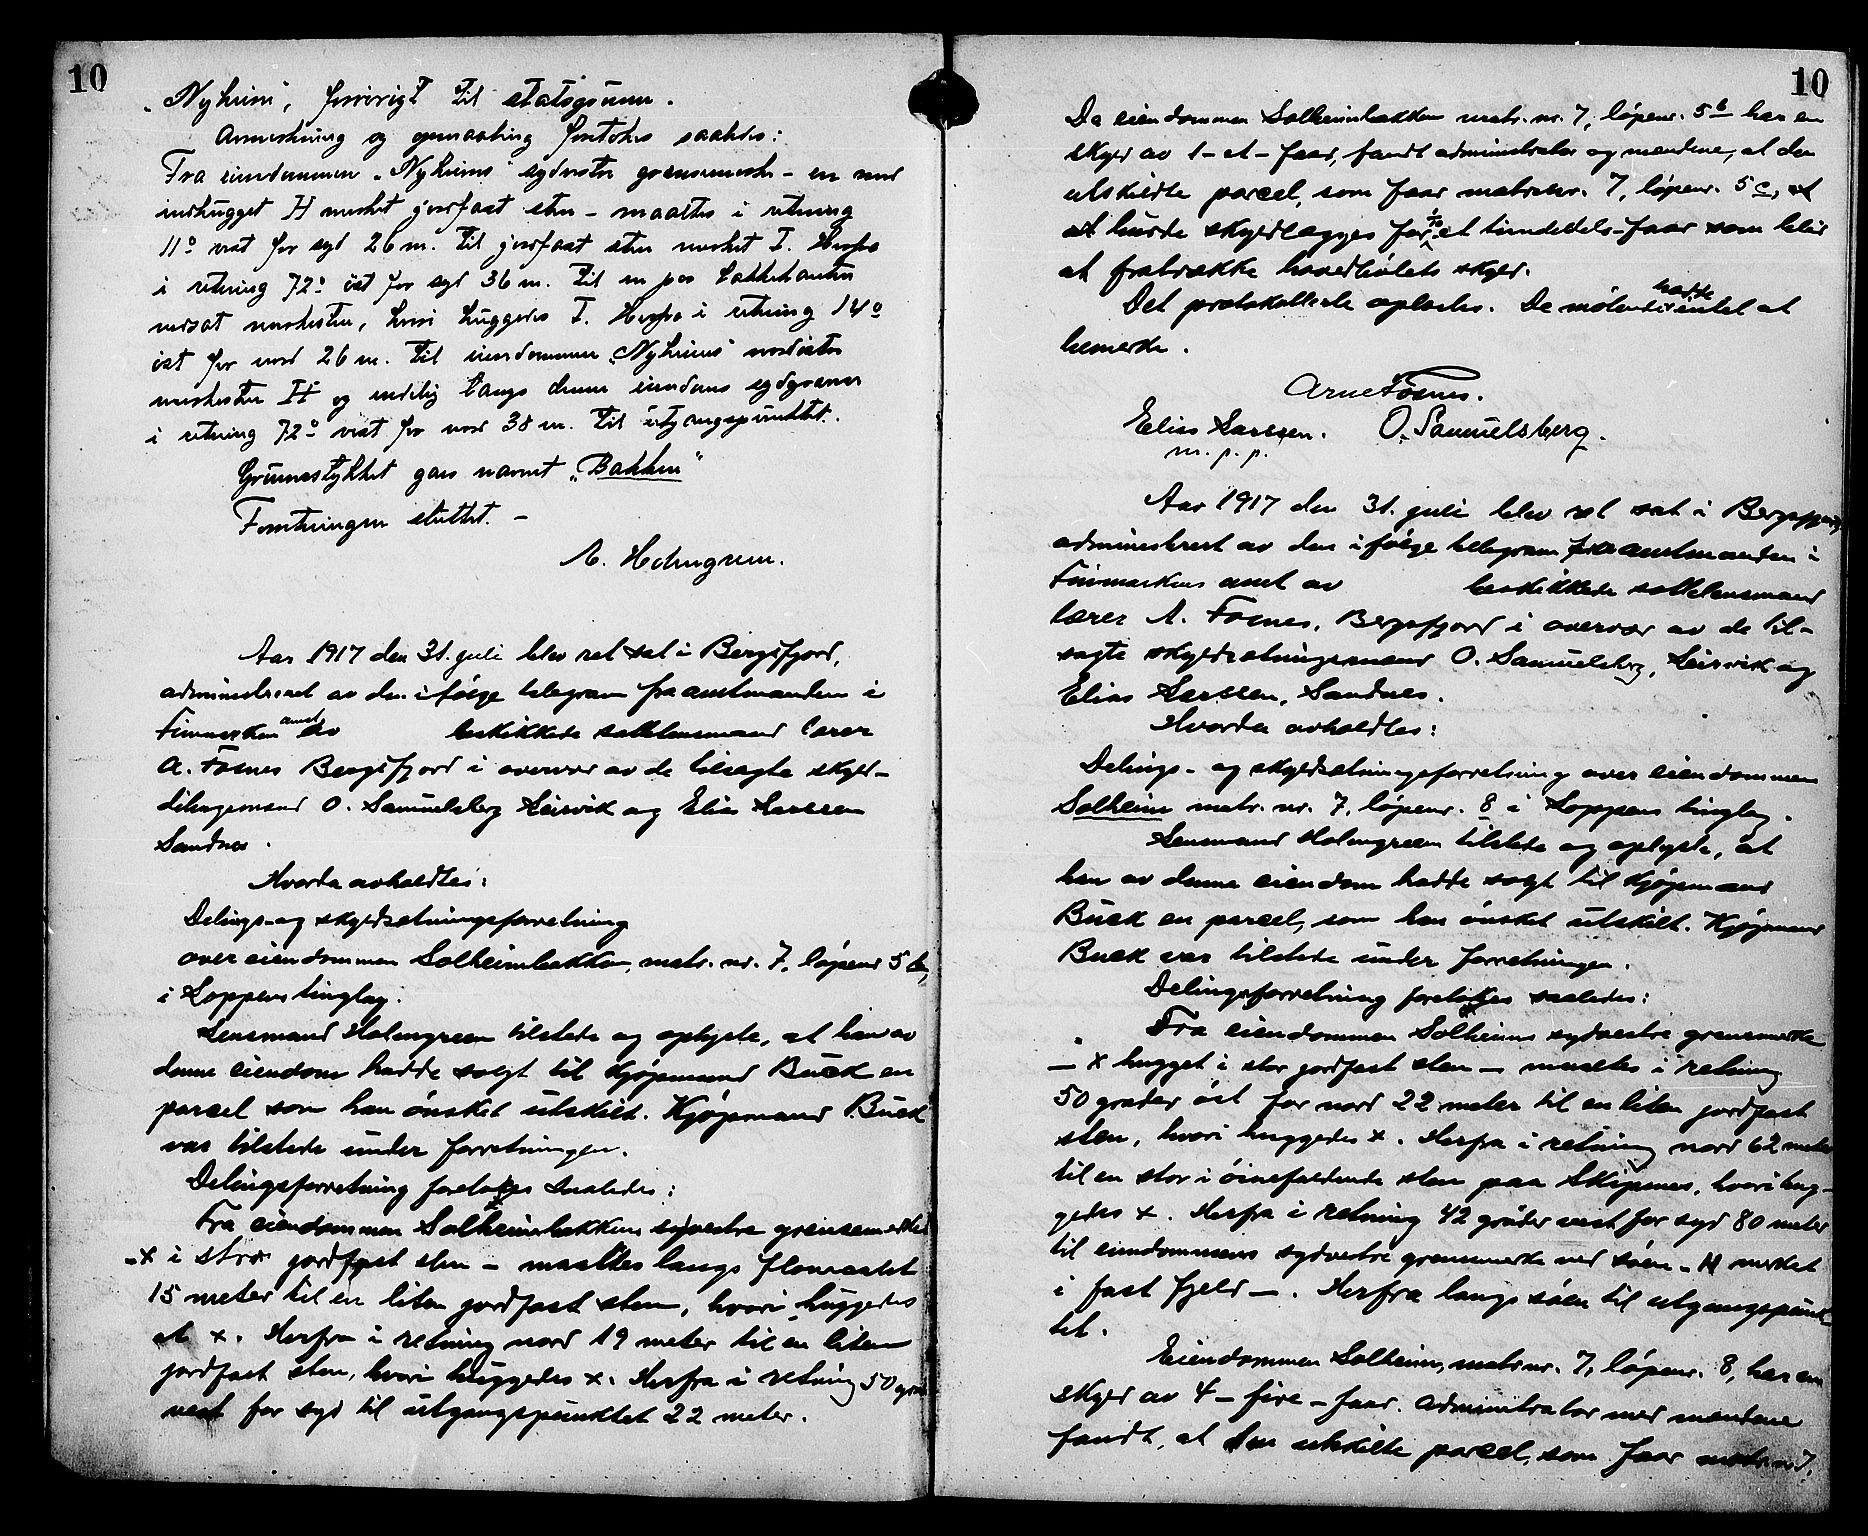 10
"Nyheim", forøvrigt til statsgrunn.
Anmerkning og opmaaling foretokes saaledes:
Fra eiendommen "Nyheims" sydvestre grensemerke – en med
indhugget H merket jordfast sten – maaltes i retning
11° vest for syd 26 m. til jordfast sten merket I. Herfra
i retning 72° øst for syd 36 m. til en paa bakkekanten
nedsat merkesten, hvori huggedes I. Herfra i retning 14°
øst for nord 26 m. til eiendommen "Nyheims" nordøstre
merkesten H og endelig langs denne eiendoms sydgrense
i retning 72° vest for nord 38 m. til utgangspunktet.
Grunnstykket gaves navnet "Bakken"
Forretningen sluttet. –
A. Holmgreen.
Aar 1917 den 31. juli blev ret sat i Bergsfjord,
administreret av den ifølge telegram fra amtmanden i
Finmarken amt av beskikkede sættelensmand lærer
A. Fosnes Bergsfjord i overvær av de tilsagte skyld-
delingsmænd O. Samuelsberg Leirvik og Elias Larssen
Sandnes.
Hvorda avholdtes:
Delings- og skyldsetningsforretning
over eiendommen Solheimbakken, matr. nr. 7, løpenr 5 b,
i Loppens tinglag.
Lensmand Holmgreen tilstede og oplyste, at han av
denne eiendom hadde solgt til Kjøpmand Buck en
parcel som han ønsket utskilt. Kjøpmand Buck
var tilstede under forretningen.
Delingsforretning foretokes saaledes:
Fra eiendommen Solheimbakkens sydvestre grensemerke
– x i stor jordfast sten – maaltes langs flomaalet
15 meter til en liten jordfast sten, hvori huggedes
et x. Herfra i retning nord 19 meter til en liten
jordfast sten, hvori huggedes x. Herfra i retning 50 grad
vest for syd til utgangspunktet 22 meter.
10
Da eiendommen Solheimbakken matr. nr. 7, løpenr. 5 b har en
skyld av 1 – et – øre, fandt administrator og mændene, at den
utskildte parcel, som faar matr. nr. 7, løpenr. 5 c, at
at burde skyldlægges for 1/10 et tiendedels øre som blir
at fratrække hovedbølets skyld.
Det protokollerte oplæstes. De møtende hadde intet at
bemerke.
Arne Fosnes.
Elias Larssen. O. Samuelsberg.
m. p. p.
Aar 1917 den 31. juli blev ret sat i Bergsfjord
administrert av den ifølge telegram fra amtmanden i
Finmarkens amt av beskikkede sættelensmand
lærer A. Fosnes, Bergsfjord i overvær av de til-
sagte skyldsetningsmænd O. Samuelsberg, Leirvik og
Elias Larssen, Sandnes.
Hvorda avholdtes:
Delings- og skyldsetningsforretning over eiendommen
Solheim matr. nr. 7, løpenr. 8 i Loppens tinglag.
Lensmand Holmgreen tilstede og oplyste, at
han av denne eiendom hadde solgt til Kjøpmand
Buck en parcel, som han ønsket utskilt. Kjøpmand
Buck var tilstede under forretningen.
Delingsforretning foretokes saaledes:
Fra eiendommen Solheims sydvestre grensemerke
– x hugget i stor jordfast sten – maaltes i retning
50 grader øst for nord 22 meter til en liten jordfast
sten, hvori huggedes x. Herfra i retning nord 62 meter
til en stor i øinefaldende sten paa Skipnes, hvori hug-
gedes x. Herfra i retning 42 grader vest for syd 80 meter
til eiendommens sydvestre grensemerke ved søen – H merket
i fast fjeld –. Herfra langs søen til utgangspunk-
tet.
Eiendommen Solheim, matr. nr. 7, løpenr. 8, har en
skyld av 4 – fire – øre. Administrator med mændene
fandt, at den utskilte parcel, som faar matr. nr 7,